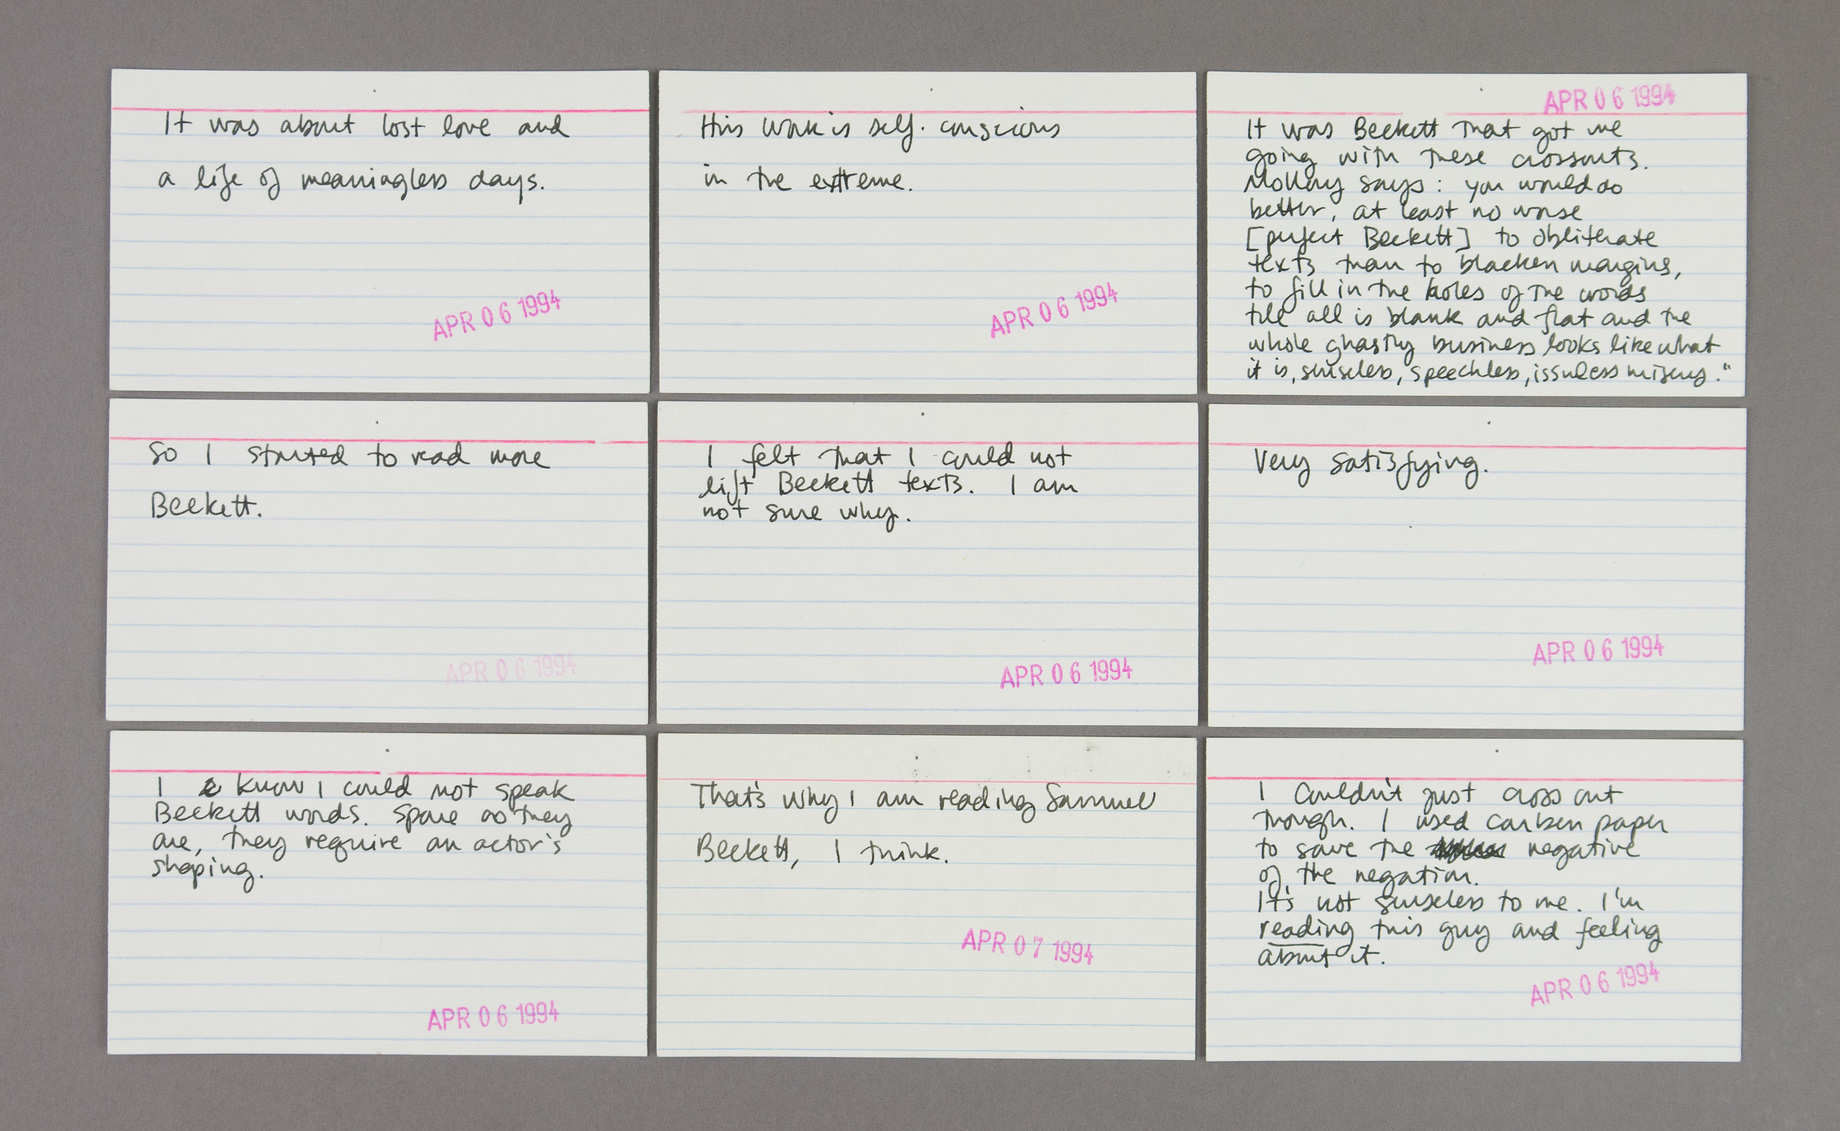 It was about lost love and
a life of meaningless days.
APR 06 1994
His work is self-conscious
in the extreme.
APR 06 1994
APR 06 1994
It was Beckett that got me
going with these crossouts.
Molloy says: you would do
better, at least no worse
[perfect Beckett] to obliterate
texts than to blacken margins,
to fill in the holes of the words
till all is blank and flat and the
whole ghastly business looks like what
it is, senseless, speechless, issueless misery."
So I started to read more
Beckett.
APR 06 1994
I felt that I could not
lift Beckett texts. I am
not sure why.
APR 06 1994
Very satisfying.
APR 06 1994
I know I could not speak
Beckett words. Spare as they
are, they require an actor's
shaping.
APR 06 1994
That's why I am reading Samuel
Beckett, I think.
APR 07 1994
I couldn't just cross out
though. I used carbon paper
to save the negative
of the negation.
It's not senseless to me. I'm
reading this guy and feeling
about it.
APR 06 1994